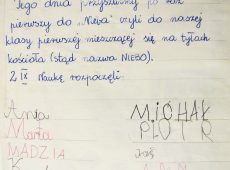 Tego dnia przyszliśmy po raz
pierwszy do „Nieba" czyli do naszej
klasy pierwszej mieszczącej się na tyłach
kościoła (stąd nazwa NIEBO).
2 IX Naukę rozpoczęli:
Ania MICHAŁ
Marta PIOTR
MADZIA